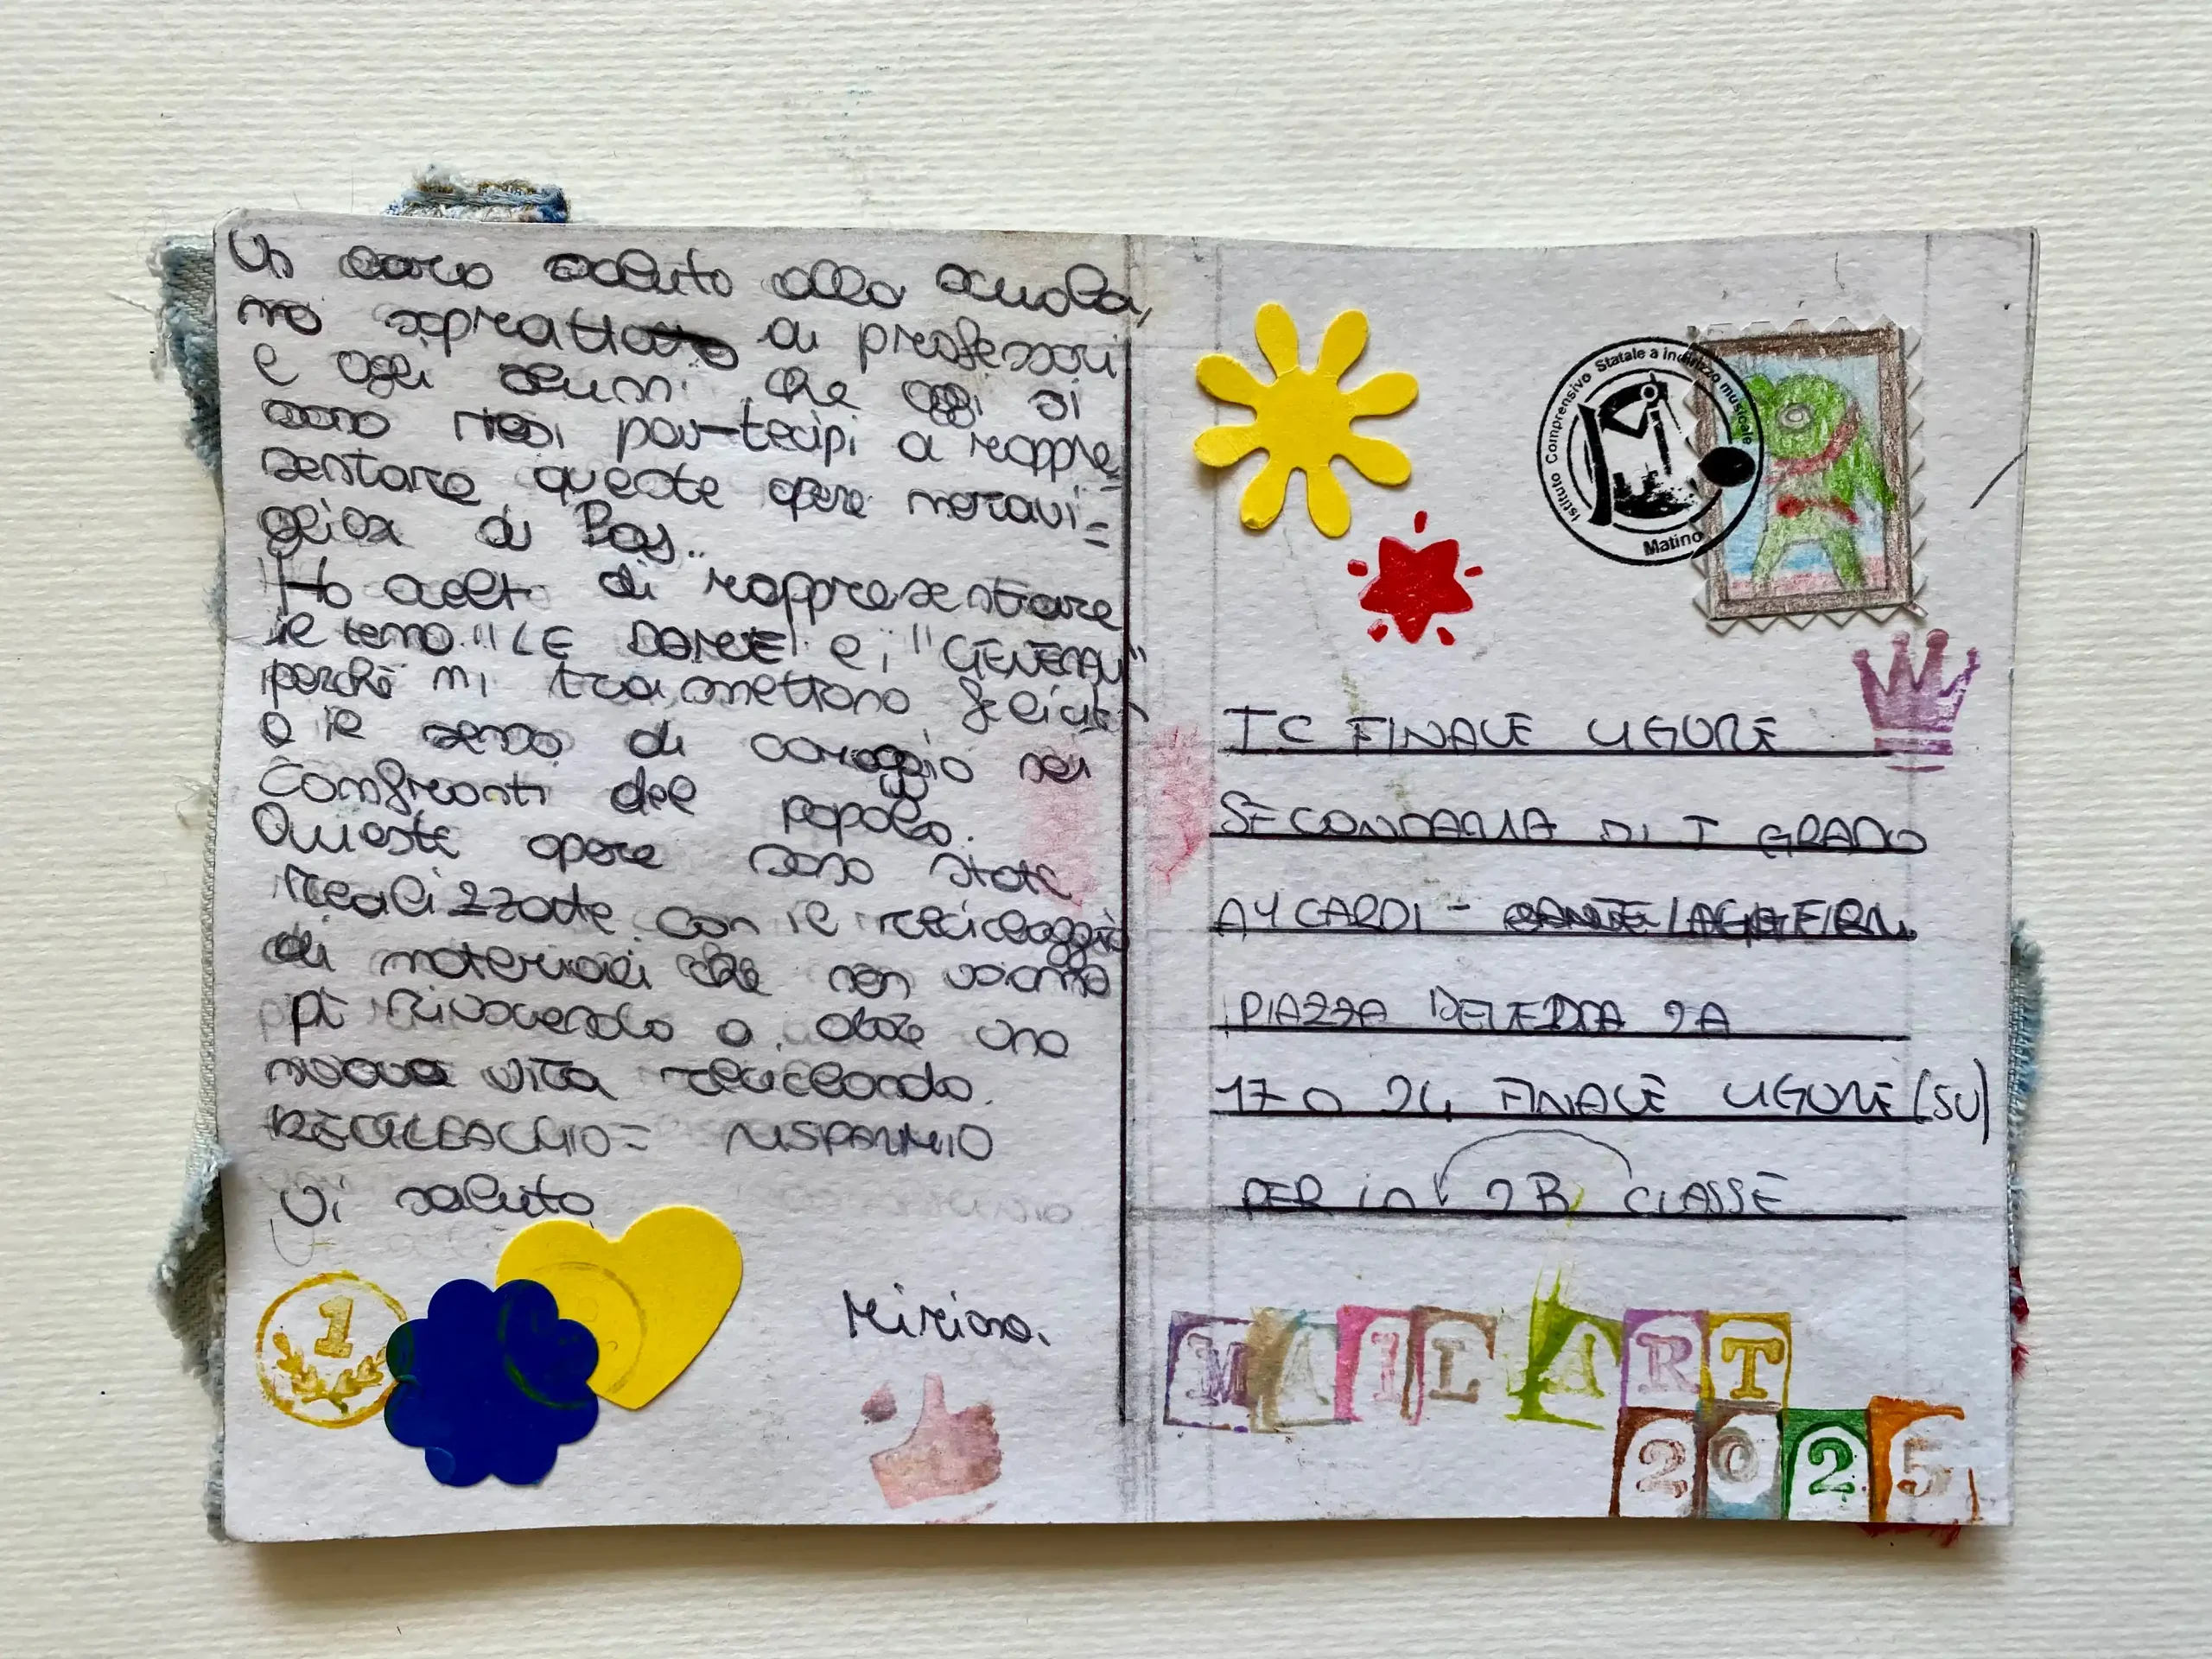 Un caro saluto alla scuola,
ma sopratto ai professori
e agli alunni che oggi si
sono resi par-tecipi a rappre=
sentare queste opere meravi=
gliose di Baj..
Ho scelto di rappresentrare
il tema "LE DAME" e i "GENERALI"
perché mi trasmettono felicità
o il senso di coraggio nei
Confronti del popolo.
Queste opere sono state
realizzate con il riciclaggio
di materiali che non usiamo
più riuscendo a dare una
nuova vita riciclando.
RECICLAGGIO = RISPARMIO
Vi saluto
1
Miriam.
Istituto Comprensivo Statale a indirizzo musicale
Matino
IC FINALE LIGURE
SECONDARIA DI I GRADO
AYCARDI -
PIAZZA DELEDDA 2A
17024 FINALE LIGURE (SV)
PER la 2B CLASSE
MAIL ART
2025